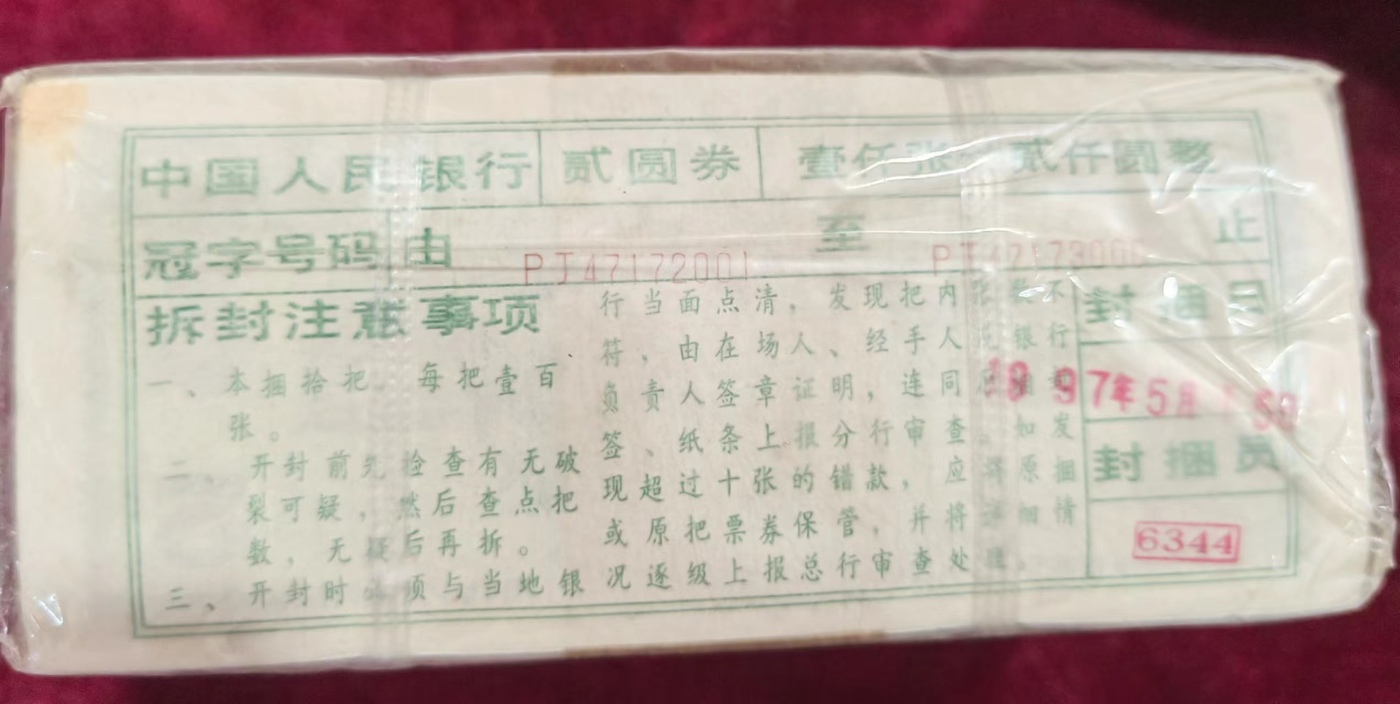 中国人民银行 贰圆券 壹仟张 贰仟圆整
冠字号码由 PJ47172001 至 PJ47173000 止
拆封注意事项
一、本捆拾把，每把壹百
张。
二、开封前先检查有无破
裂可疑，然后查点把
数，无疑后再拆。
三、开封时必须与当地银
行当面点清，发现把内张数不
符，由在场人、经手人及银行
负责人签章证明，连同原捆封
签、纸条上报分行审查。如发
现超过十张的错款，应将原捆
或原把票券保管，并将详细情
况逐级上报总行审查处理。
封捆日
1997年5月
封捆员
6344